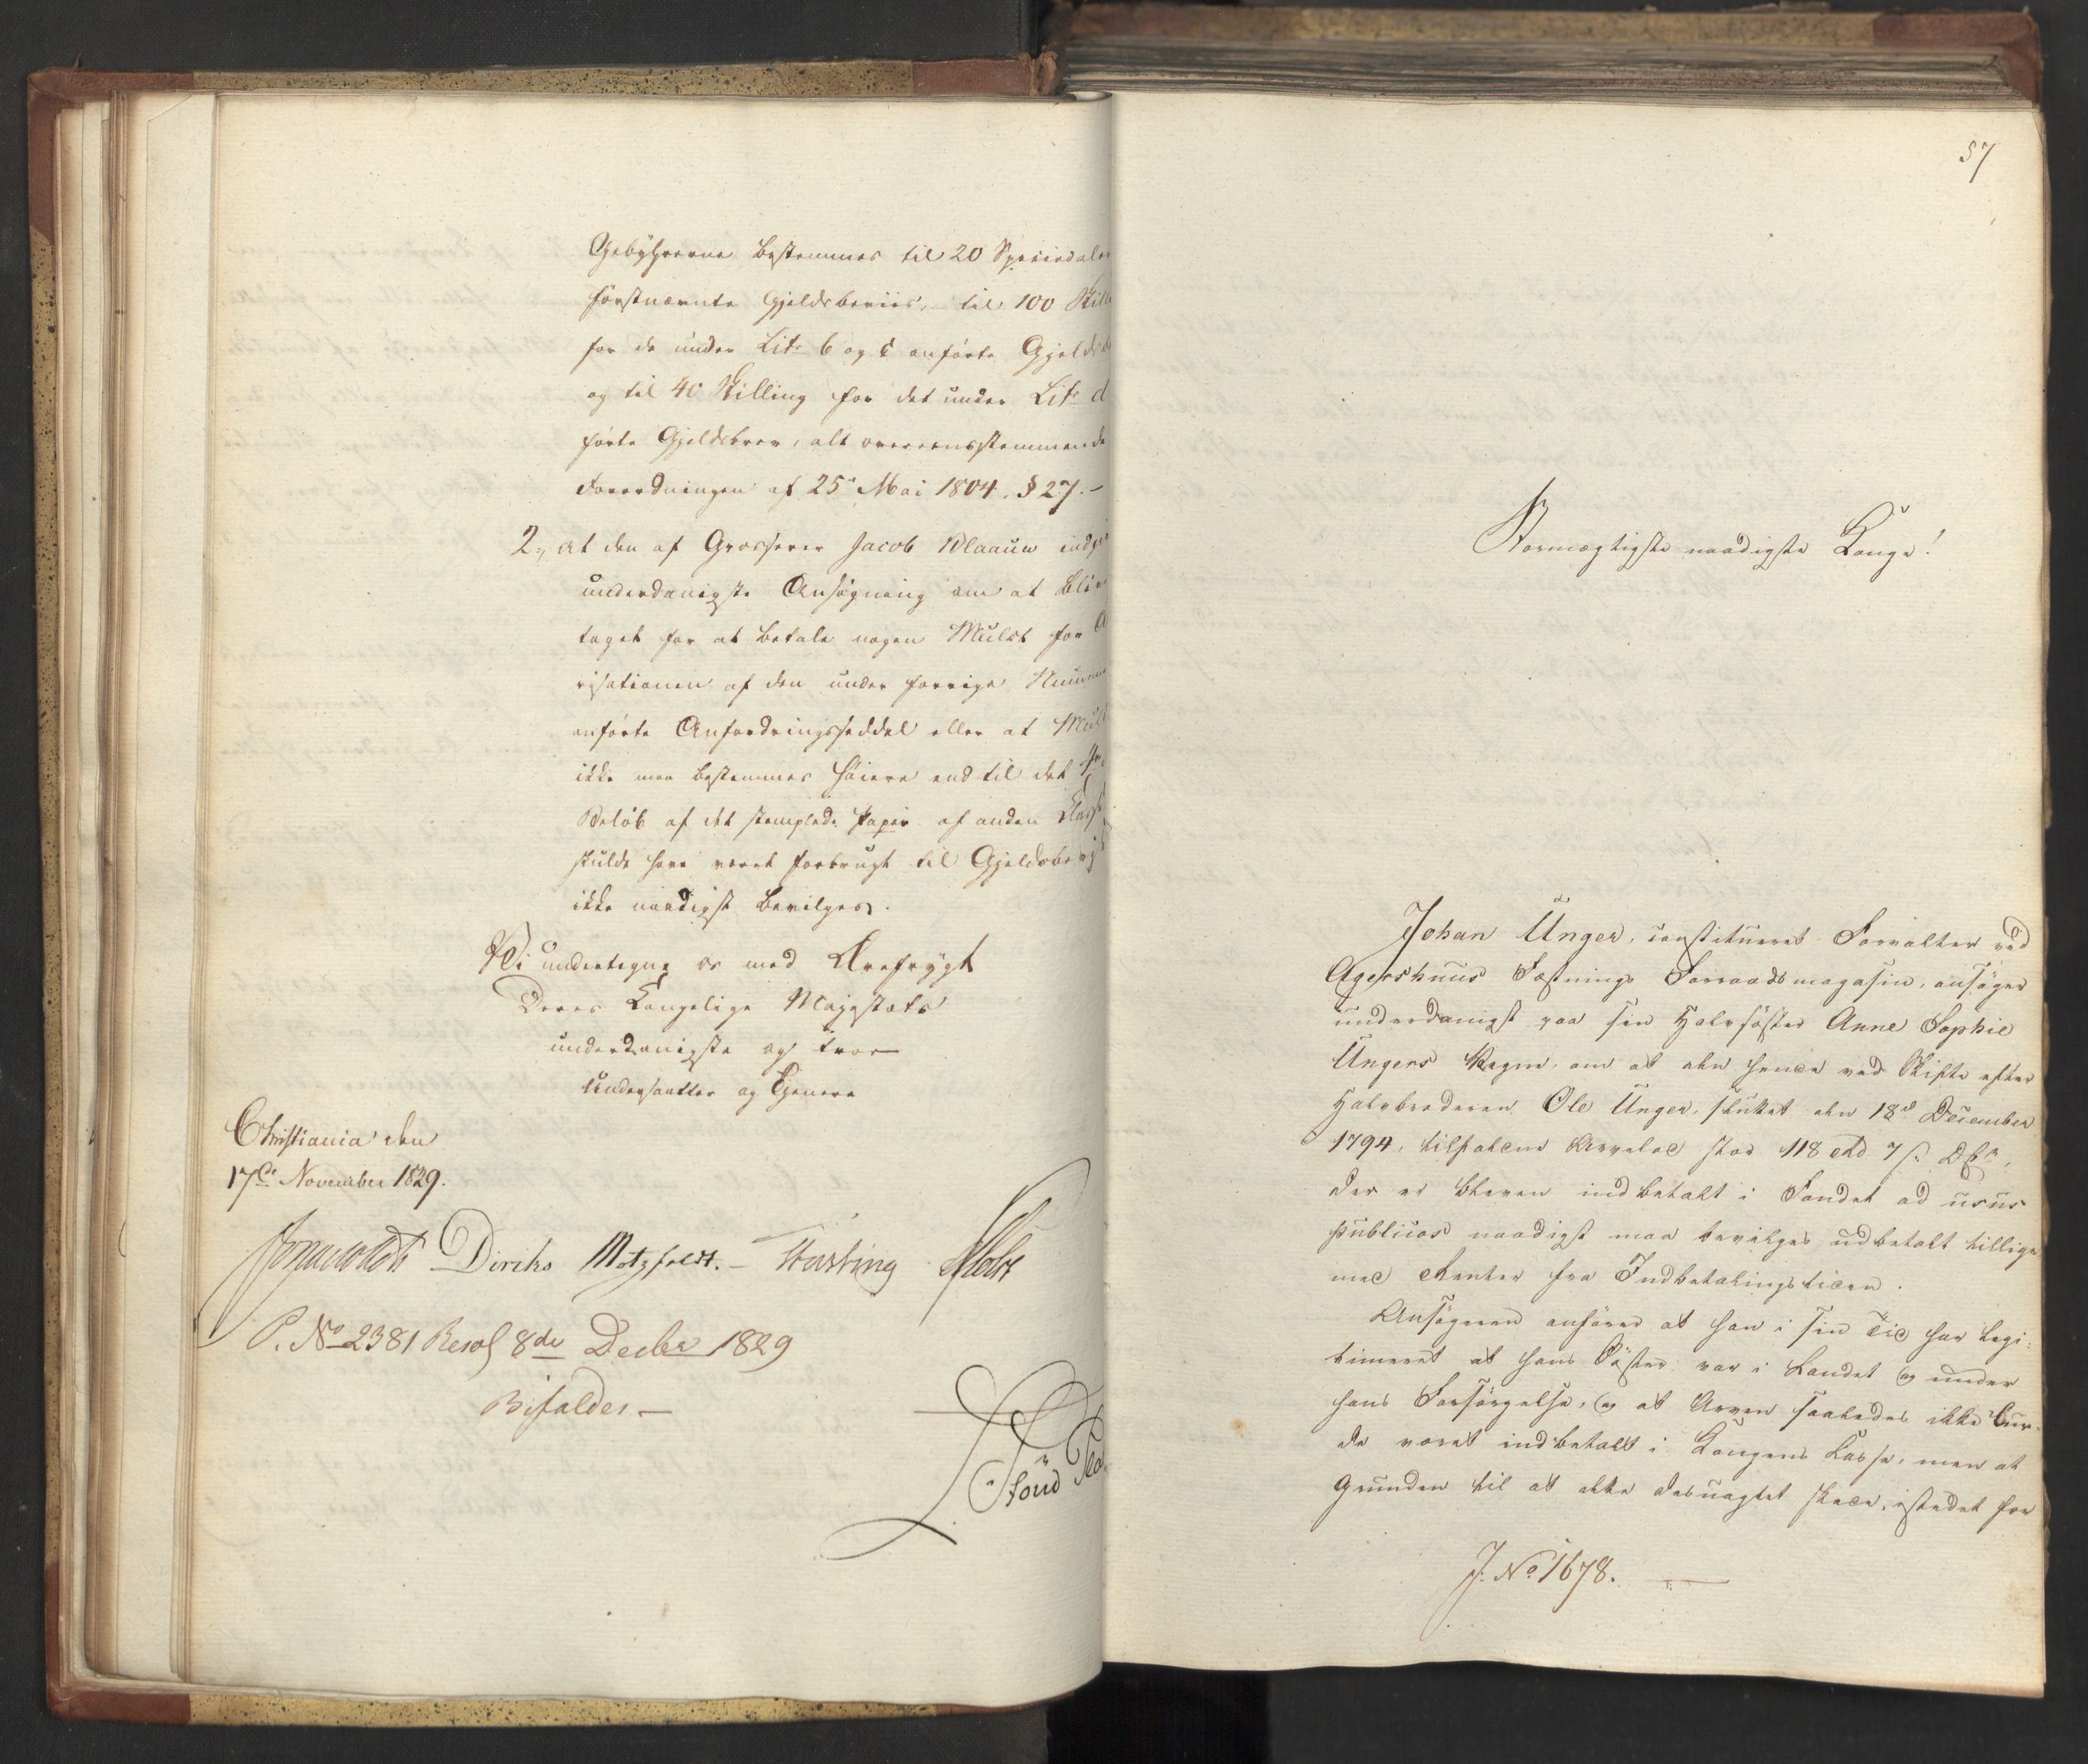 Gebyhrerne bestemmes til 20 Speciedaler
förstnævnte Gjeldsbeviis, – til 100 Skill
for de under Litr b og c anförte Gjelds
og til 40 Skilling for det under Litr d
förte Gjeldsbrev, alt overeensstemmende
Forordningen af 25 Mai 1804. § 27. –
2., at den af Grosserer Jacob Blaauw indgi
underdanigste Ansögning om at bliv
taget for at betale nogen Mulct for
risationen af den under forrige Numm
anförte Anfordringsseddel eller at Mul
ikke maa bestemmes höiere end til det
Belöb af det stemplede Papir af anden Class
skulde have været forbrugt til Gjeldsbe
ikke naadigst bevilges.
Vi undertegne os med Ærefrygt
Deres Kongelige Majestæts
underdanigste og troe
Undersaatter og Tjenere
Christiania den
17de November 1829.
Diriks Motzfeldt. – Fasting Holst
P. No 2381 Resol 8de Decbr 1829
Bifaldes –
57
Stormægtigste naadigste Konge!
Johan Unger, constitueret Forvalter ved
Agershuus Fæstnings Forraadsmagasin, ansöger
underdanigst paa sin Halvsöster Anne Sophie
Ungers Vegne, om at den hende ved Skifte efter
Halvbroderen Ole Unger, sluttet den 18de December
1794, tilfaldne Arvelod stor 118 Rd 7 s. DCr,
der er bleven indbetalt i Fondet ad usus
publicos naadigst maa bevilges udbetalt tillige
med Renter fra Indbetalingstiden.
Ansögeren anförer at han i sin Tid har legi-
timeret at hans Söster var i Landet og under
hans Forsörgelse, og at Arven saaledes ikke bur-
de været indbetalt i Kongens Kasse, men at
Grunden til at dette desuagtet skede, istedet for
J. No 1678.